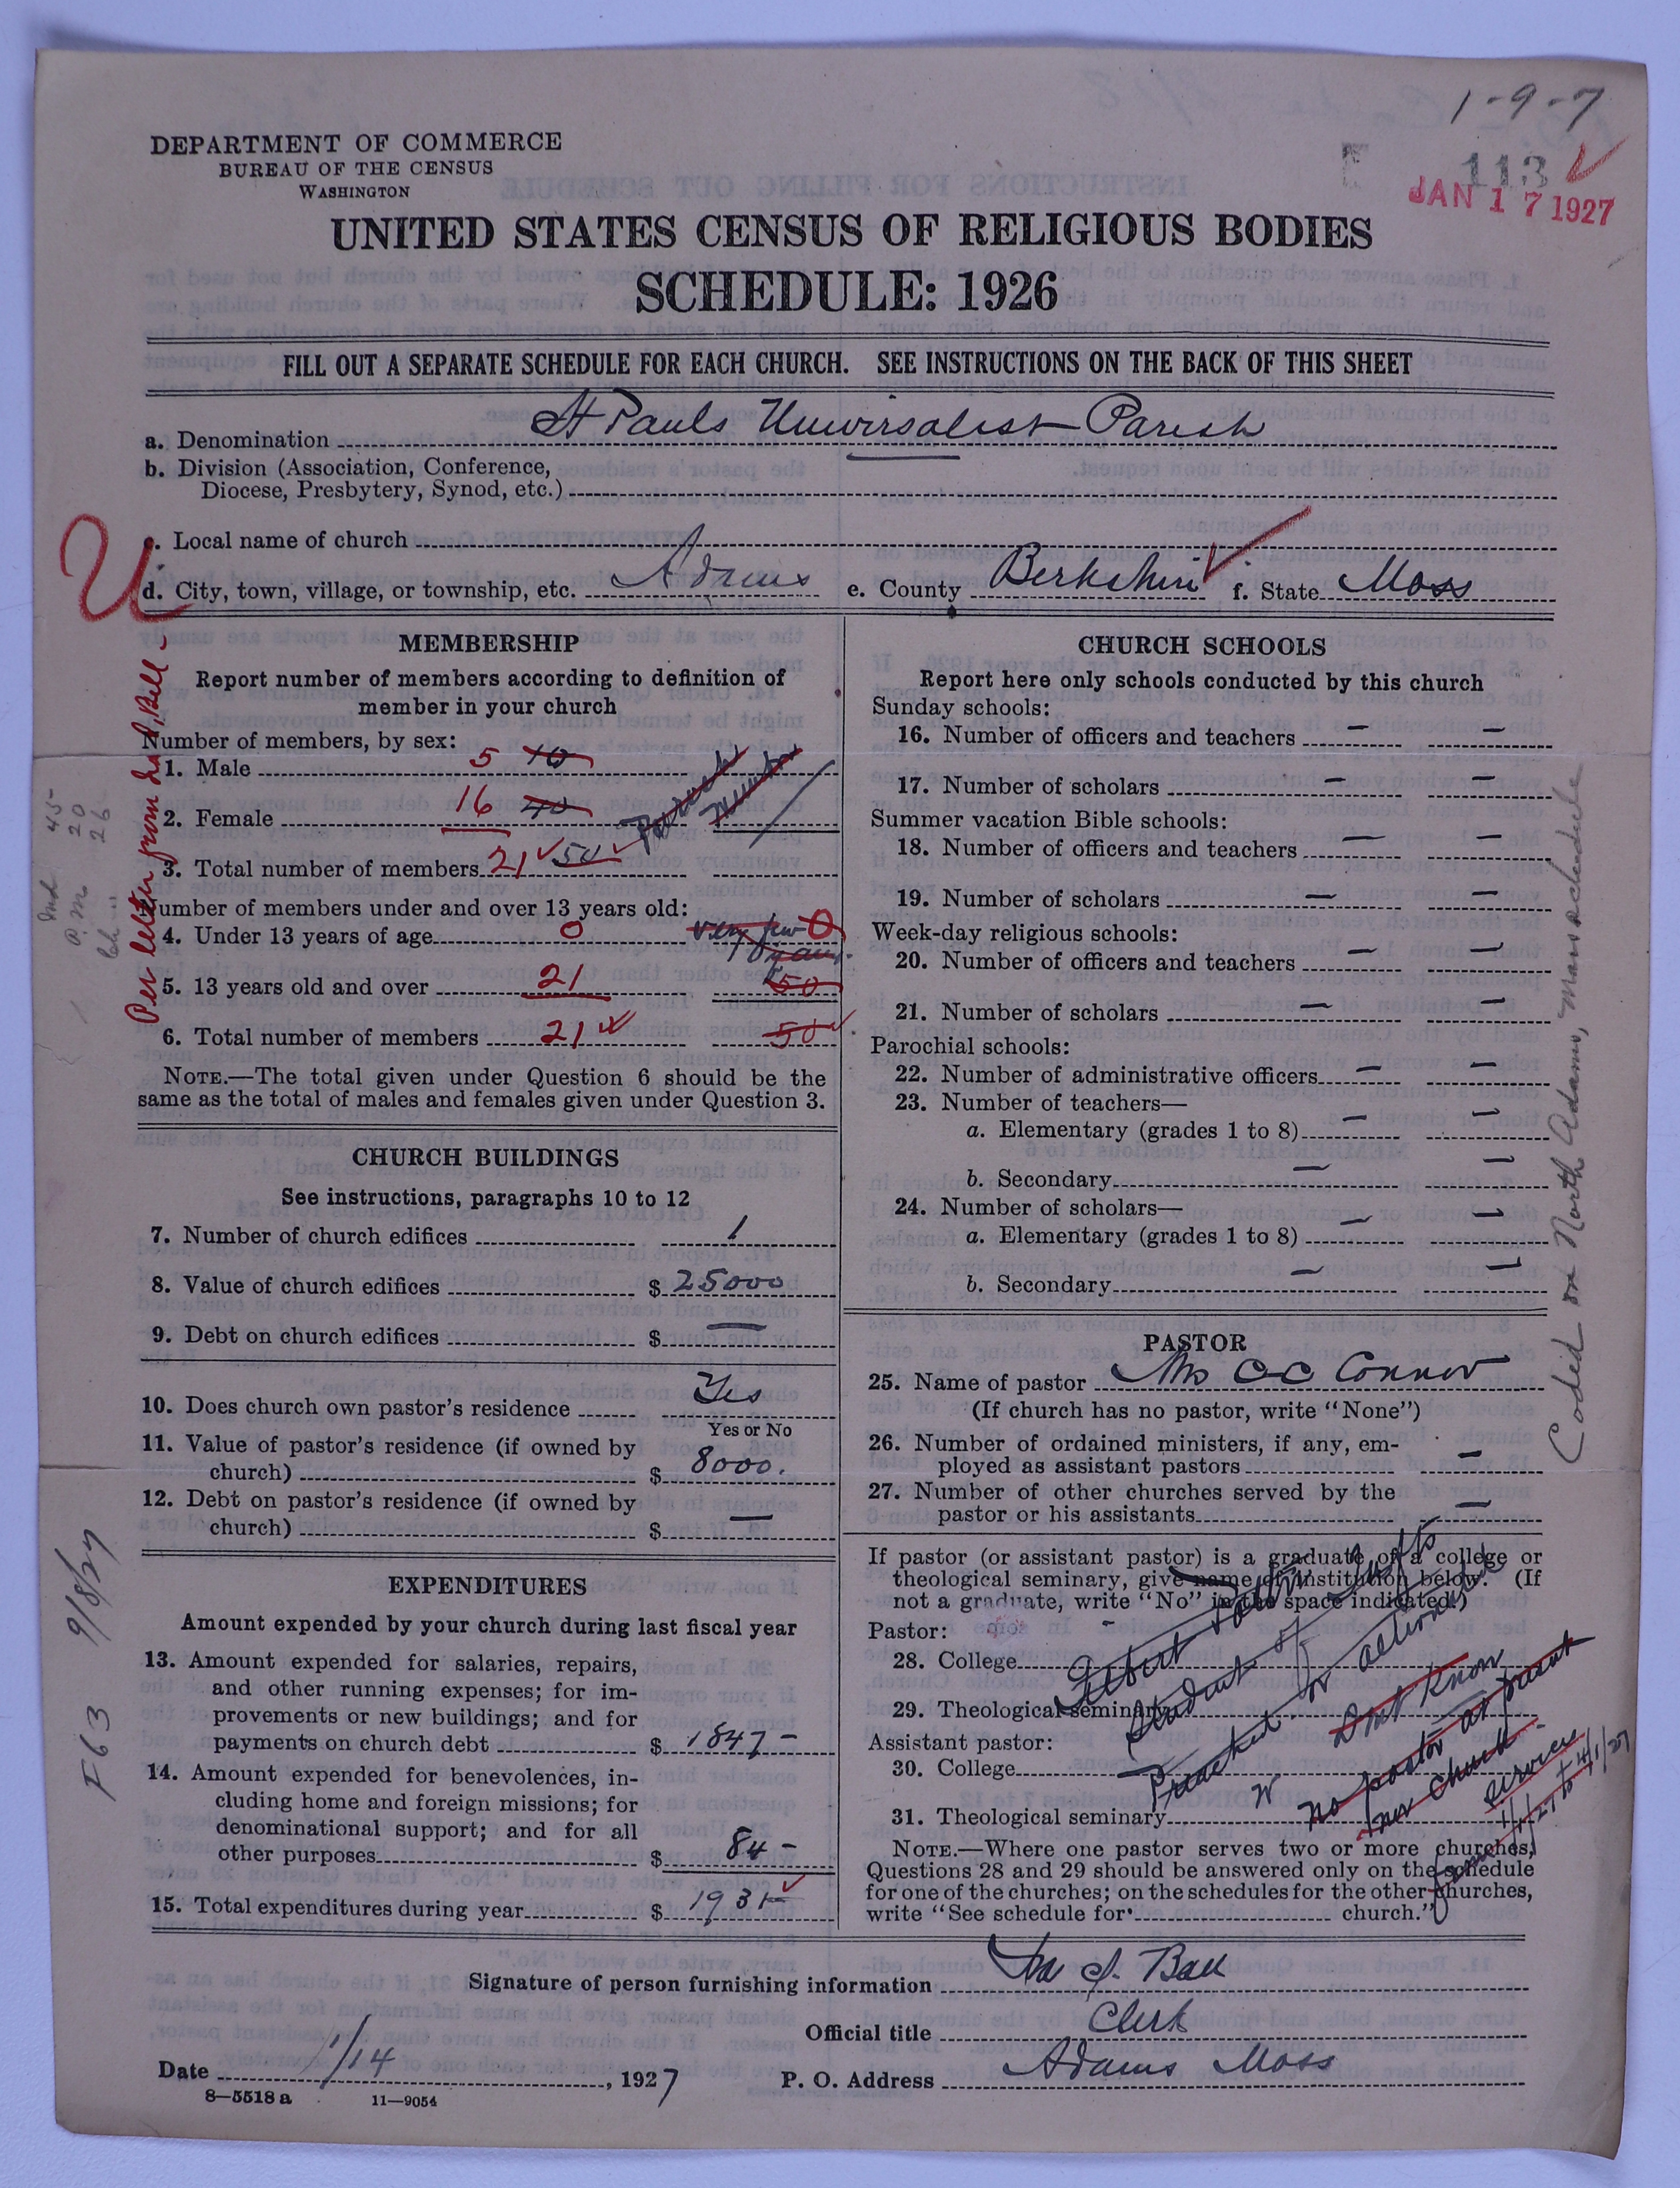 1-9-7
113
JAN 17 1927
DEPARTMENT OF COMMERCE
BUREAU OF THE CENSUS
WASHINGTON
UNITED STATES CENSUS OF RELIGIOUS BODIES
SCHEDULE: 1926
FILL OUT A SEPARATE SCHEDULE FOR EACH CHURCH. SEE INSTRUCTIONS ON THE BACK OF THIS SHEET
a. Denomination St Pauls Universalist Parish
b. Division (Association, Conference,
Diocese, Presbytery, Synod, etc.)
c. Local name of church
U
d. City, town, village, or township, etc. Adams e. County Berkshire f. State Mass
MEMBERSHIP
Report number of members according to definition of
member in your church
Number of members, by sex:
1. Male 5 10
2. Female 16 40
3. Total number of members 21 50
Number of members under and over 13 years old:
4. Under 13 years of age 0 very few 0
5. 13 years old and over 21 50
6. Total number of members 21 50
NOTE.—The total given under Question 6 should be the
same as the total of males and females given under Question 3.
CHURCH BUILDINGS
See instructions, paragraphs 10 to 12
7. Number of church edifices 1
8. Value of church edifices $ 25000
9. Debt on church edifices $ —
10. Does church own pastor's residence Yes
Yes or No
11. Value of pastor's residence (if owned by
church) $ 8000.
12. Debt on pastor's residence (if owned by
church) $ —
EXPENDITURES
Amount expended by your church during last fiscal year
13. Amount expended for salaries, repairs,
and other running expenses; for im-
provements or new buildings; and for
payments on church debt $ 1847 —
14. Amount expended for benevolences, in-
cluding home and foreign missions; for
denominational support; and for all
other purposes $ 84 —
15. Total expenditures during year $ 1931 —
CHURCH SCHOOLS
Report here only schools conducted by this church
Sunday schools:
16. Number of officers and teachers — —
17. Number of scholars — —
Summer vacation Bible schools:
18. Number of officers and teachers — —
19. Number of scholars — —
Week-day religious schools:
20. Number of officers and teachers — —
21. Number of scholars — —
Parochial schools:
22. Number of administrative officers — —
23. Number of teachers—
a. Elementary (grades 1 to 8) — —
b. Secondary — —
24. Number of scholars—
a. Elementary (grades 1 to 8) — —
b. Secondary — —
PASTOR
25. Name of pastor Mrs C C Connor
(If church has no pastor, write "None")
26. Number of ordained ministers, if any, em-
ployed as assistant pastors —
27. Number of other churches served by the
pastor or his assistants —
If pastor (or assistant pastor) is a graduate of a college or
theological seminary, give name of institution below. (If
not a graduate, write "No" in the space indicated.)
Pastor:
28. College
29. Theological seminary
Assistant pastor:
30. College
31. Theological seminary
Albert
Student of Tufts
Dont Know
no pastor at present
church
service
4/1/27
NOTE.—Where one pastor serves two or more churches,
Questions 28 and 29 should be answered only on the schedule
for one of the churches; on the schedules for the other churches,
write "See schedule for church."
Signature of person furnishing information
Official title Clerk
Date 1/14, 1927 P. O. Address Adams Mass
8—5518 a 11—9054
Per letter from
Coded on North Adams, Mass schedule
F63 9/8/27